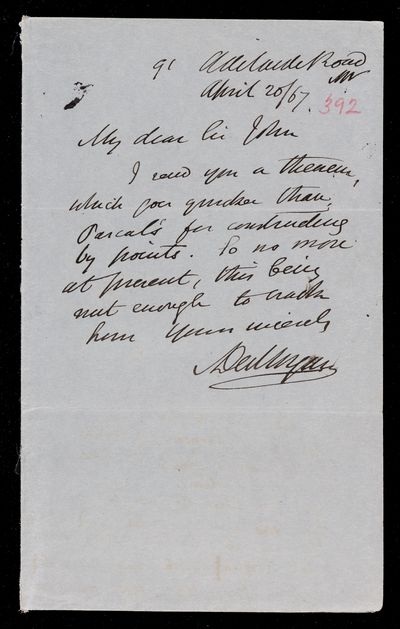 91 Adelaide Road
NW
April 20/67.
392
My dear Sir John
I send you a theorem,
which goes quicker than
Pascal's for constructing
by points. So no more
at present, this being
nut enough to crack
from Yours sincerely
ADeMorgan